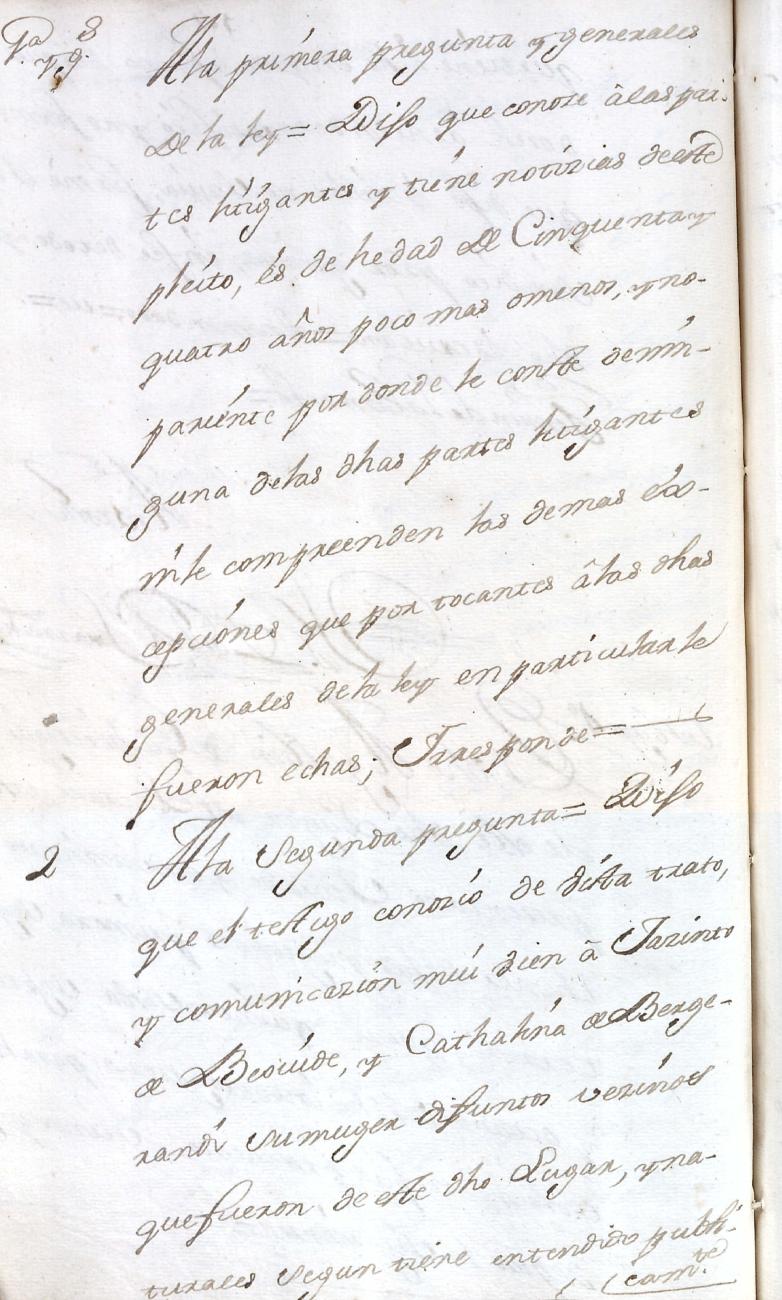 1ª y g.s
A la primera pregunta y generales
De la ley = Dijo que conoze â las par-
tes litigantes y tiene notizias de este
pleito, és de hedad de Cinquenta y
quatro años poco mas omenos, y no-
pariente por donde le conste denin-
guna delas dhas partes litigantes
nile compreenden las demas éx-
cepciónes que por tocantes â las dhas
generales de la ley en particular le
fueron echas; Yrresponde =
2 A la Segunda pregunta = Dijo
que el testigo conozió de vista trato,
y comunicazión mui bien â Jazinto
de Beoiuide, y Cathalina de Berge-
randi sumuger difuntos vezinos
quefueron de este dho Lugar, y na-
turales segun tiene entendido publi-
camte